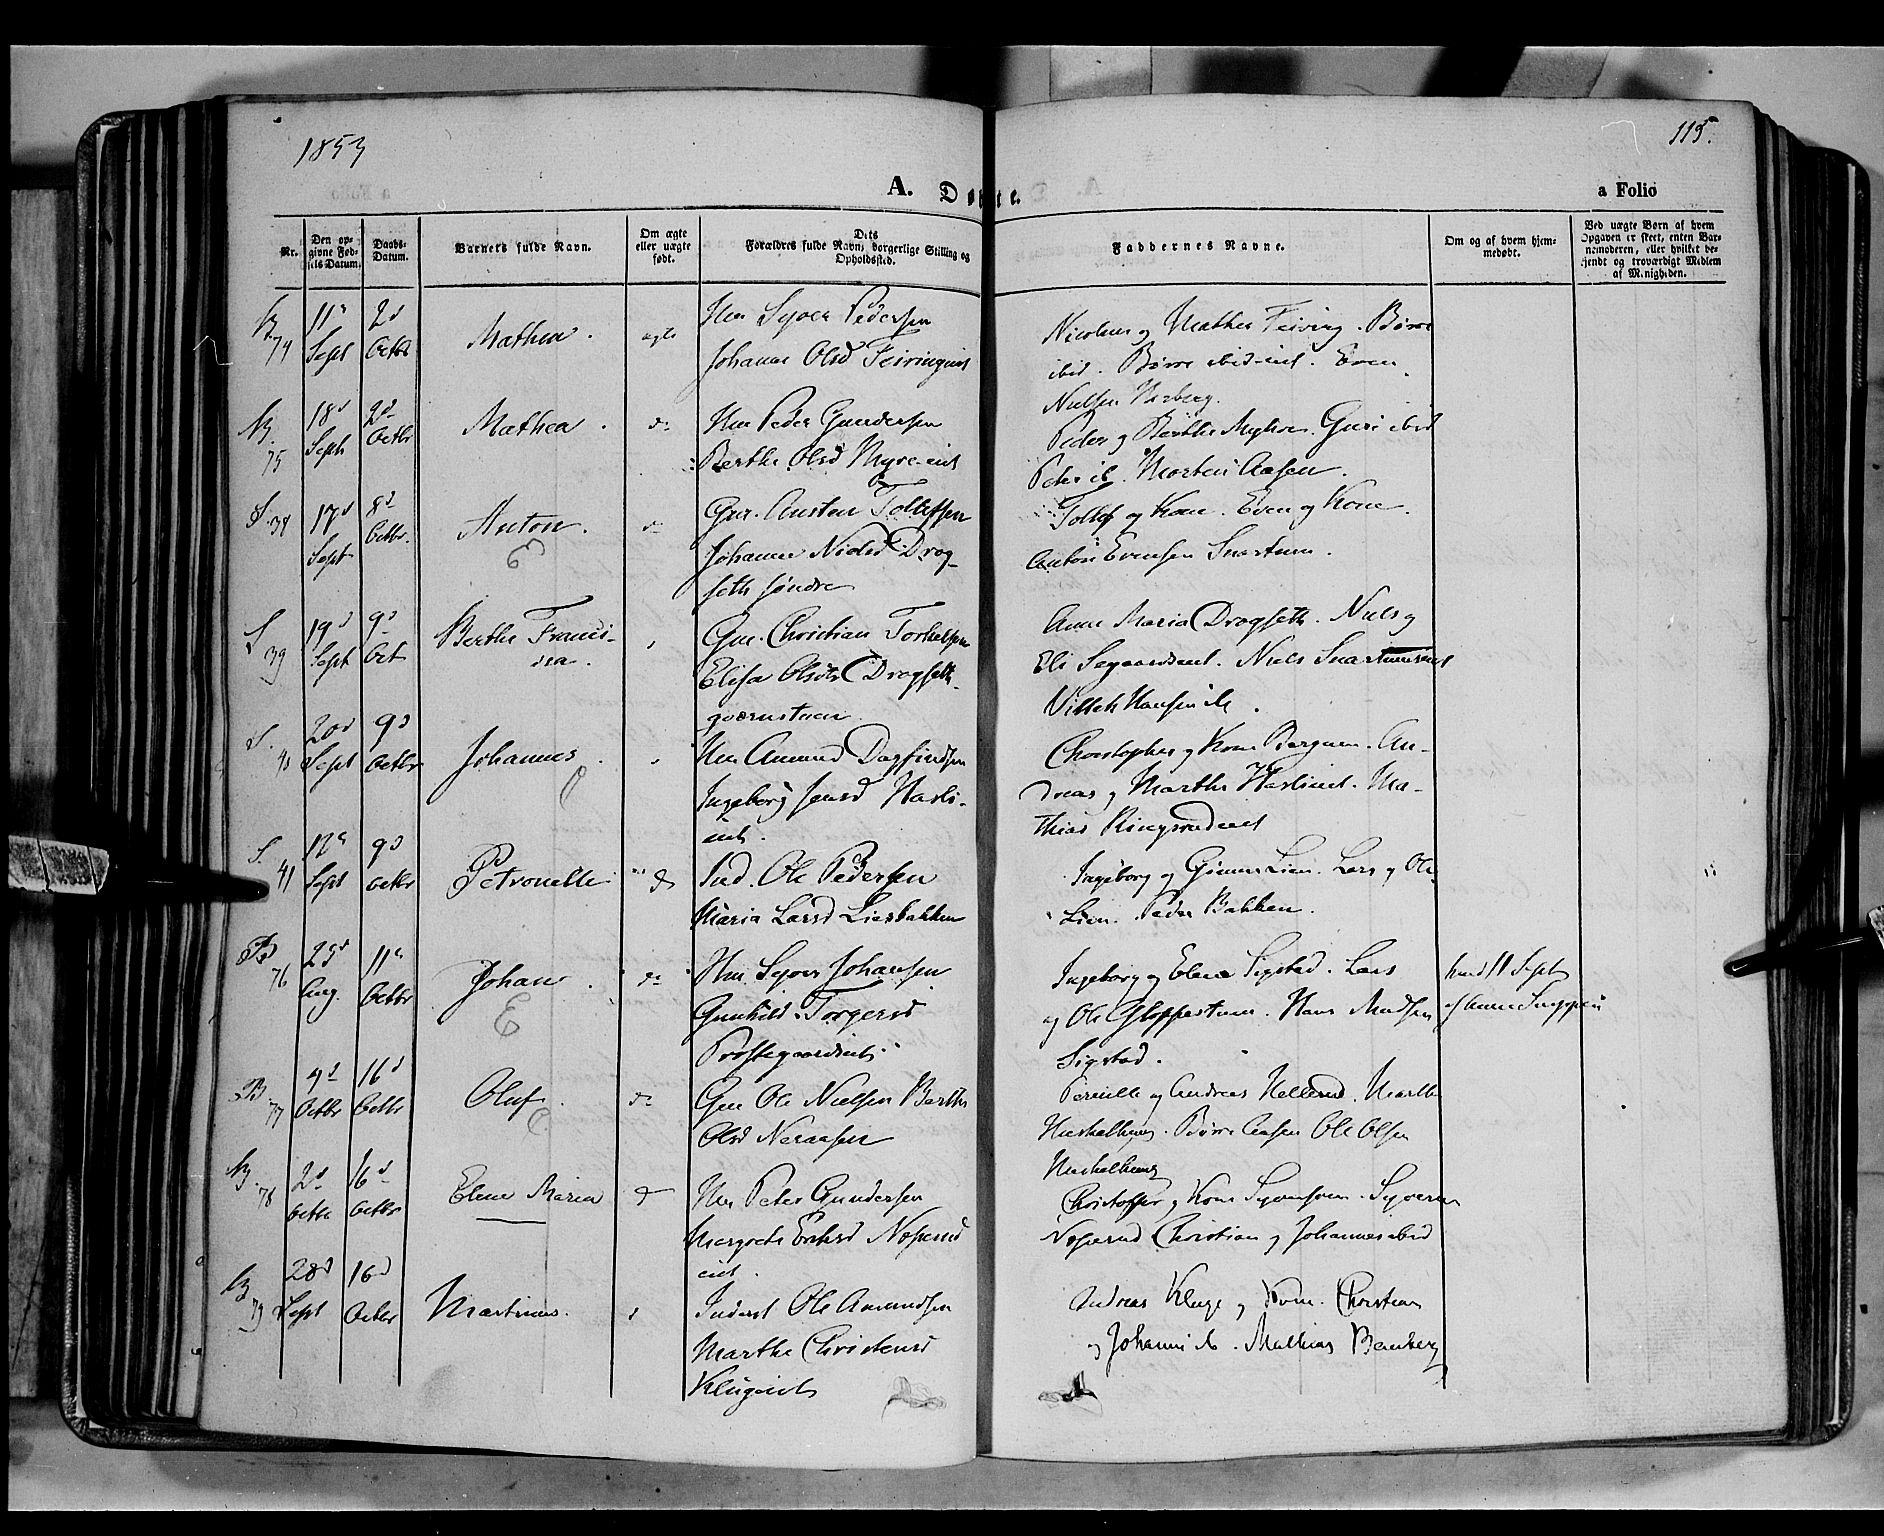 1853
115.
A. Døbte.
a Folio
Nr.
Den opgivne Fødsels Datum.
Daabs-Datum.
Barnets fulde Navn.
Om ægte eller uægte født.
Dets Forældres fulde Navn, borgerlige Stilling og Opholdssted.
Faddernes Navne.
Om og af hvem hjemmedøbt.
Ved uægte Børn af hvem Opgaven er skeet, enten Barnemoderen, eller hvilket bekjendt og troværdigt Medlem af Menigheden.
74 11 Sept 2d Octbr Mathea. ægte
Hm Syver Pedersen
Johanne Olsd Feiringeiet
Nicolaus og Mathea Feiring. Børre
ibid. Børre ibid-eiet. Even
Nielsen
75 18d Sept 2d Octbr Mathea. do
Hm Peder Gundersen
Berthe Olsd Myre-eiet
Peder og Berthe Myhre. Guri ibid
Peter ib. Morten Aasen.
S. 38 17d Sept 8d Octbr. Anton. do
E
Gm. Austen Tollefsen
Johanne Nielsd Drog-
seth søndre
Tollef og Kone. Even og Kone.
Anton Evensen Snartum.
S. 39 19d Sept 9d Oct Berthe Franci-
sca.
Gm. Christian Torkelsen
Elisa Olsdtr Drogseth
qværnstuen
Anne Maria Drogseth. Niels og
Eli Søgaardseiet. Niels Snartumseiet
Hansen ib.
S. 40 20d Sept 9d Octbr Johannes.
Hm Amund Dagfindsen
Ingeborg Jensd Hasli-
eiet.
Christopher og Kone Bergum. An-
dreas og Marthe Haslieiet. Ma-
thias Ringsrudeiet
S. 41 12 Sept 9d Octbr Petronelle do
Ind. Ole Pedersen
Maria Larsd Liesbakken
Ingeborg og Gunner Lien. Lars og Ole
Lien. Peder Bakken.
B 76 25d Aug. 11 Octbr Johan. do
E
Hm Syver Johansen
Gunhild Torgersd
Prestegaardseiet
Ingeborg og Elene Sigstad. Lars
og Ole Gloppestuen. Hans Madsen
Sigstad.
hmd 11 Sept
af Anne
B 77 4d Octbr 16d Octbr Oluf. do
Gm Ole Nielsen Berthe
Olsd Neraasen
Pernille og Andreas Hellerud. Marthe
Huskelhus. Børre Aasen Ole Olsen
Huskelhus
78 2d Octbr 16d Octbr Elene Maria do
Hm Peter Gundersen
Margrete Eriksd Noserud
eiet.
Christoffer og Kone Syversveen. Syver
Noserud Christian og Johannes ibid
79 28d Sept 16d Octbr Martinus.
Inderst Ole Amundsen
Marthe Christensd
Klugeiet
Andreas Kluge og Kone. Christian
og Johanne ib. Mathias Bamberg